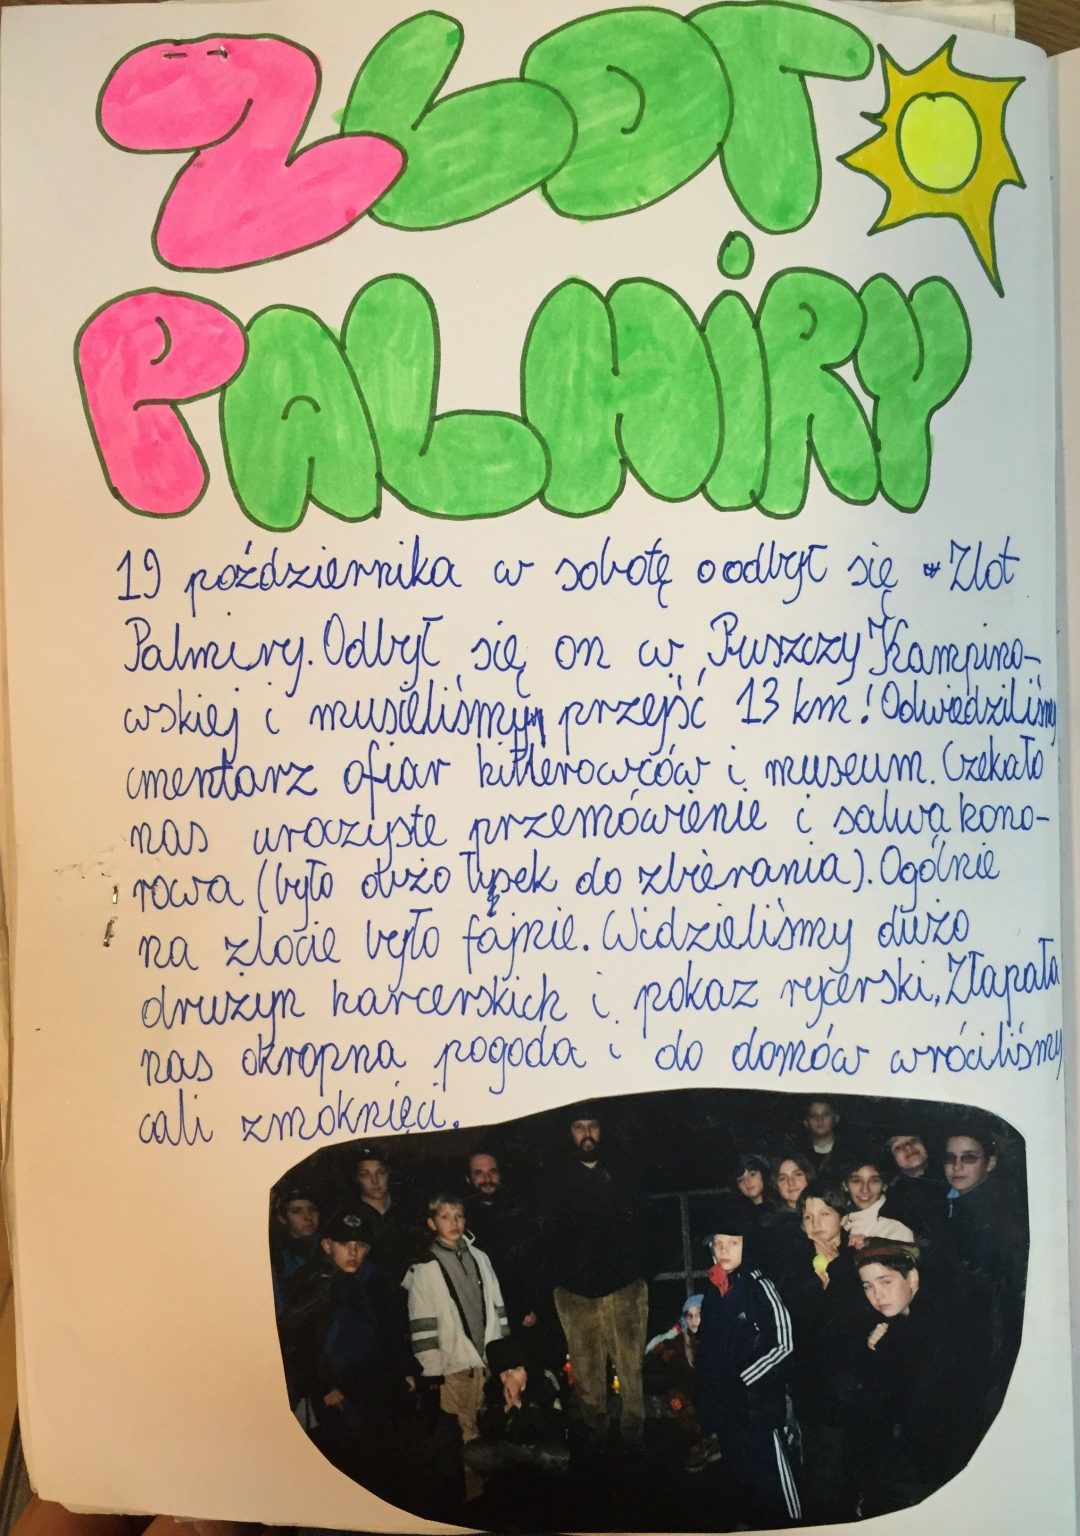 ZLOT
PALMiRY
19 października w sobotę odbył się Zlot
Palmiry. Odbył się on w Puszczy Kampino-
wskiej i musieliśmy przejść 13 km! Odwiedziliśmy
cmentarz ofiar hitlerowców i museum. Czekało
nas uroczyste przemówienie i salwa hono-
rowa (było dużo łysek do zbierania). Ogólnie
na zlocie było fajnie. Widzieliśmy dużo
drużyn harcerskich i pokaz rycerski. Złapała
nas okropna pogoda i do domów wróciliśmy
cali zmoknięci.